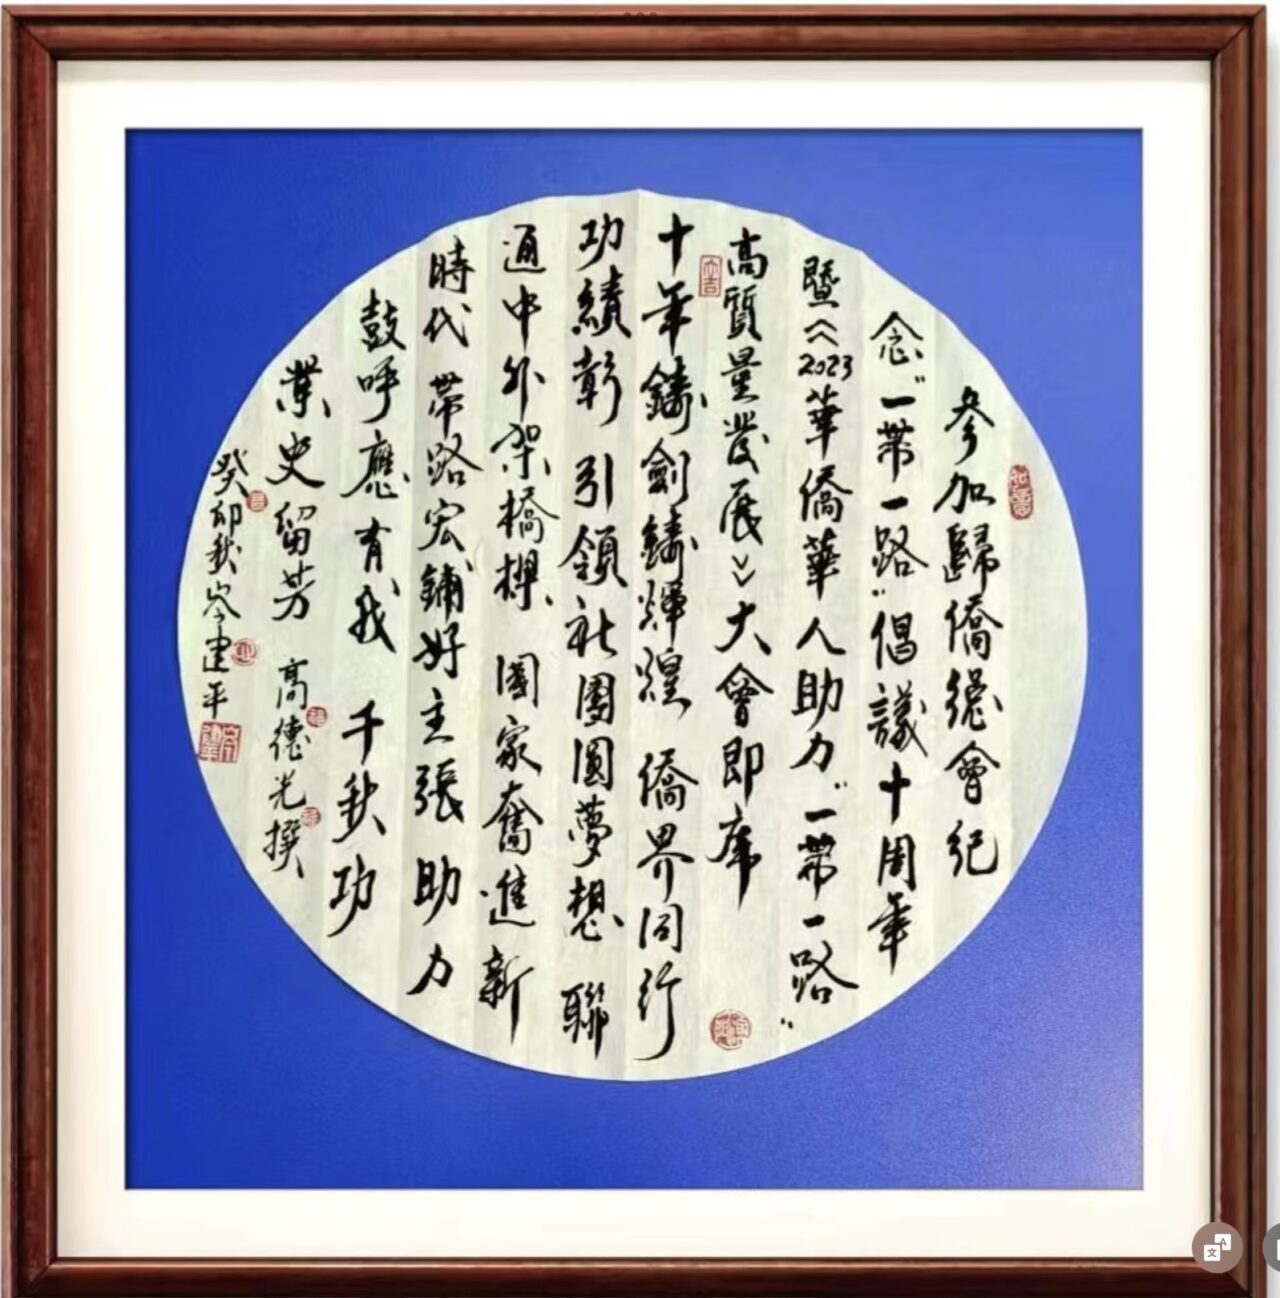 参加歸僑總會紀
念"一带一路"倡議十周年
暨《2023華僑華人助力"一带一路"
高質量發展》大會即席
十年鑄劍鑄輝煌 僑界同行
功績彰 引領社團圓夢想 聯
通中外架橋樑 國家奮進新
時代 带路宏鋪好主張 助力
鼓呼應有我 千秋功
業史留芳 高德光撰
癸卯秋岑建平
大吉